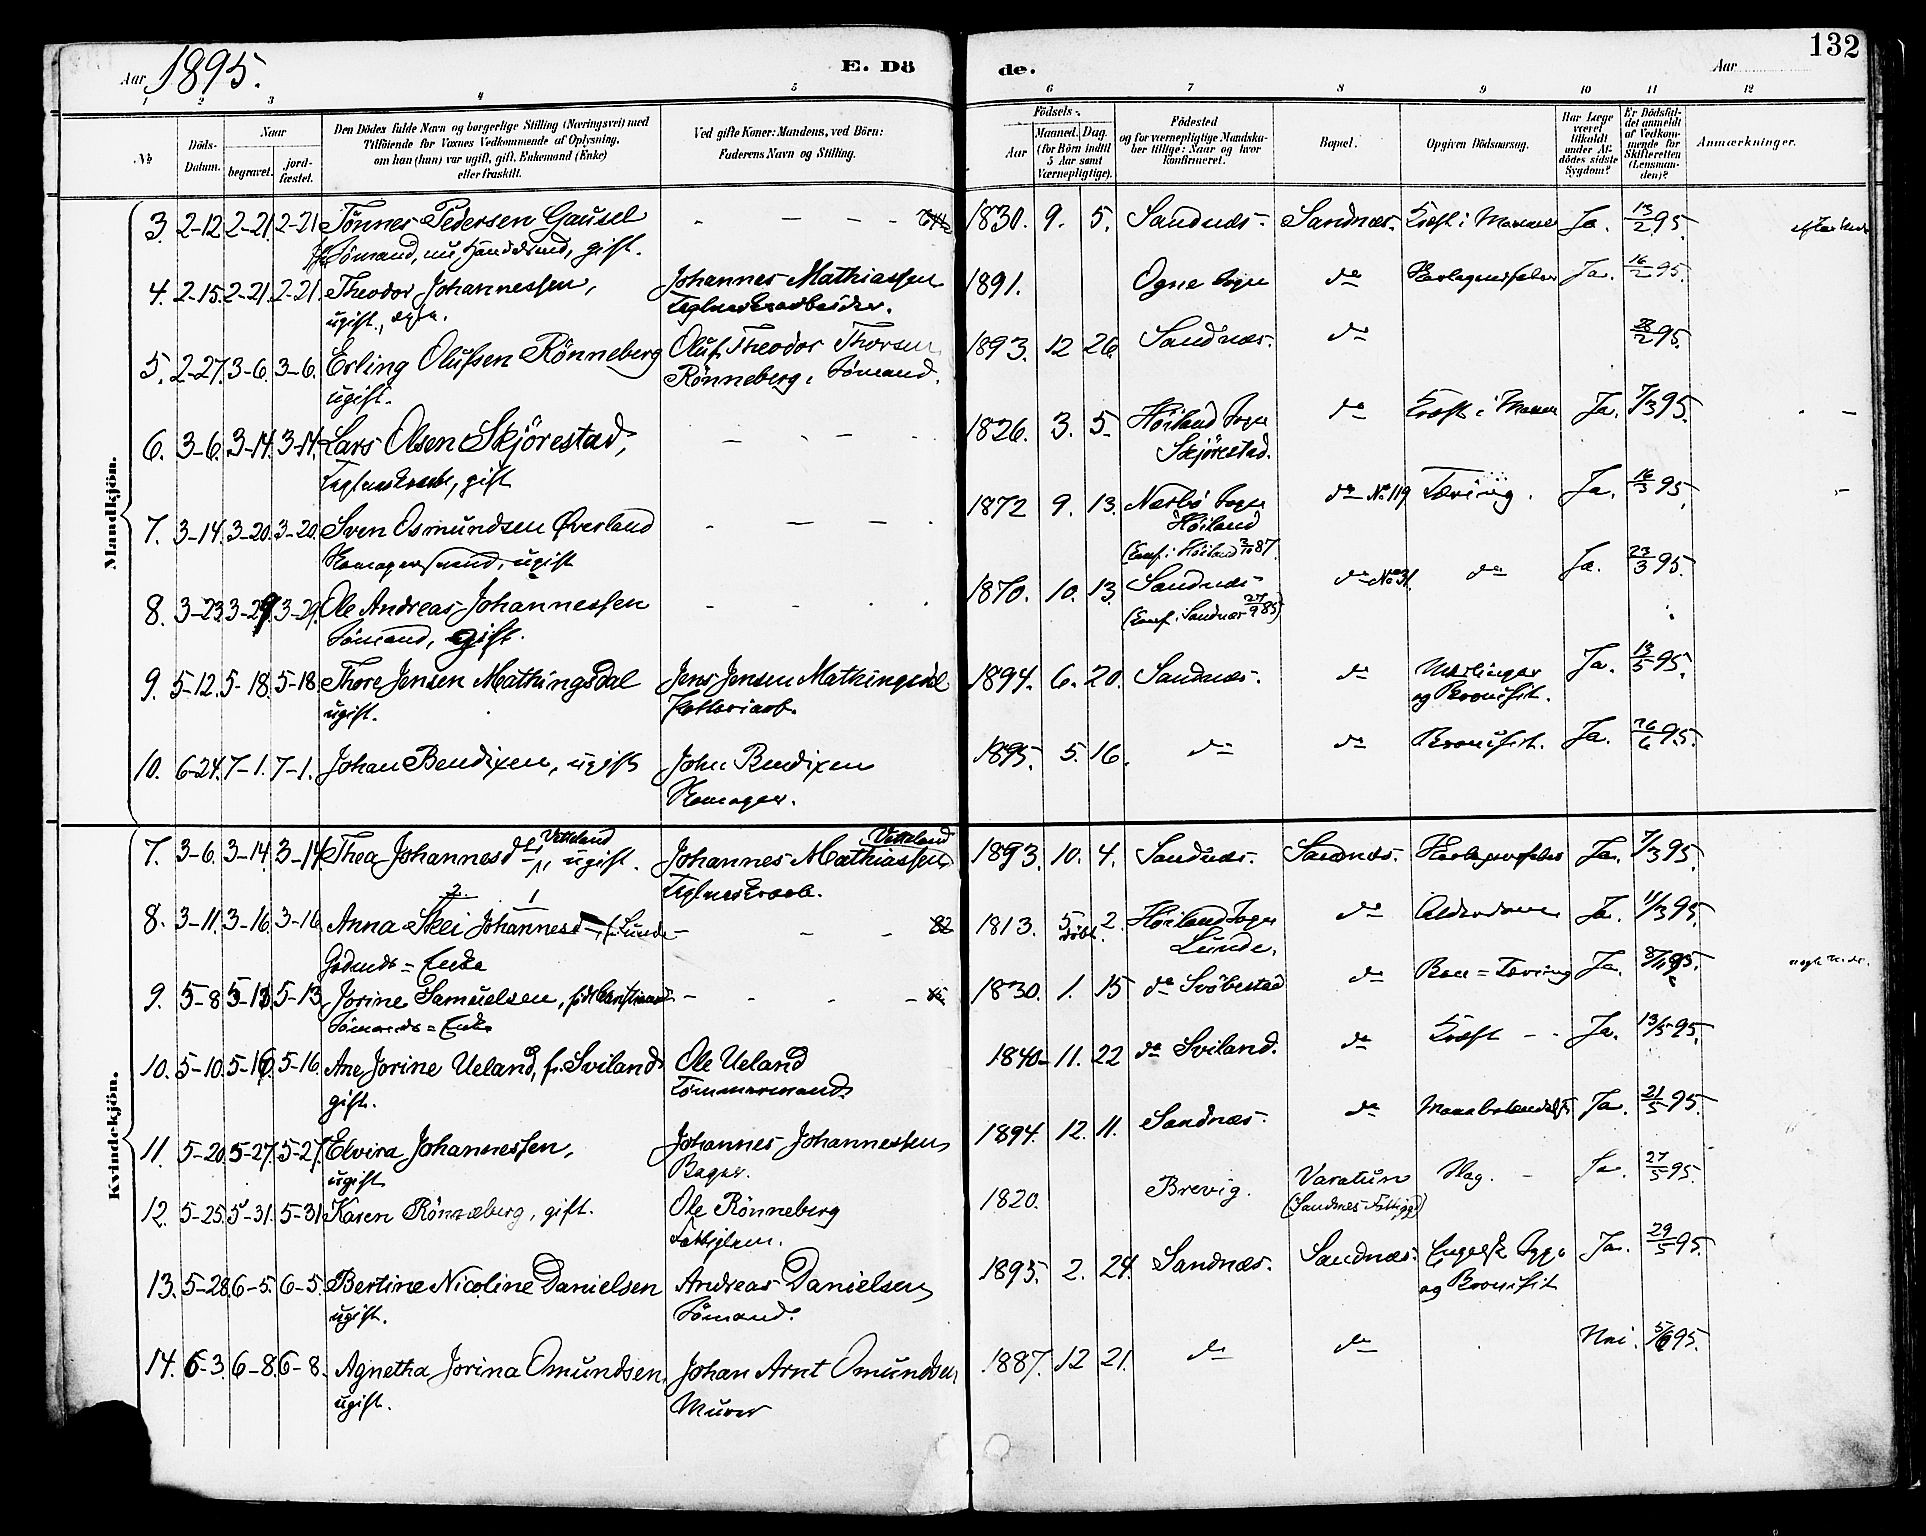 132
Aar 1895.
E. Dö de.
Aar
1 2 3 4 5 6 7 8 9 10 11 12
№
Döds-Datum.
Naar
begravet.
jord-fæstet.
Den Dødes fulde Navn og borgerlige Stilling (Næringsvei) med
Tilföiende for Voxnes Vedkommende af Oplysning,
om han (hun) var ugift, gift, Enkemand (Enke)
eller fraskilt.
Ved gifte Koner: Mandens, ved Börn:
Faderens Navn og Stilling.
Födsels-
Aar
Maaned. Dag.
(for Börn indtil
5 Aar samt
Værnepligtige).
Födested
og for værnepligtige Mandska-
ber tillige: Naar og hvor
konfirmeret.
Bopæl.
Opgiven Dödsaarsag.
Har Læge
været
tilkaldt
under Af-
dödes sidste
Sygdom?
Er Dödsfal-
det anmeldt
af Vedkom-
mende for
Skifteretten
(Lensman-
den)?
Anmærkninger.
Mandkjön.
3. 2-12. 2-21. 2-21 Tönnes Pedersen Gausel - - - - 1830. 9. 5. Sandnæs- Sandnæs. Kræft i Maven Ja. 13/2 95.
Sömand, nu Handelsmd, gift.
4. 2-15. 2-21. 2-21. Theodor Johannessen, Johannes Mathiassen 1891. Ogne Sogn do Ja. 16/2 95.
ugift, Teglverksarbeider.
5. 2-27. 3-6. 3-6. Erling Olufsen Rönneberg Oluf Theodor Thorsen 1893. 12 26. Sandnæs. do 28/2 95.
ugift. Rönneberg, Sömand.
6. 3-6. 3-14. 3-14. Lars Olsen Skjörestad, - - - 1826. 3. 5. Höiland Sogn do Kræft i Maven Ja. 7/3 95.
Teglverksarb, gift Skjörestad.
7. 3-14. 3-20. 3-20. Sven Osmundsen Øverland - - - 1872 9. 13. Nærbö Sogn do No 119 Tæring. Ja. 16/3 95.
Komagersvend, ugift Höiland
(Konf. i Höiland 3/10 87.
8. 3-23. 3-29. 3-29. Ole Andreas Johannessen - - - 1870. 10. 13. Sandnæs do No 31. do Ja. 23/3 95.
Sömand, ugift. (Konf. i Sandnæs 27/9 85)
9. 5-12. 5-18. 5-18. Thore Jensen Mathingsdal Jens Jensen Mathingsdal 1894. 6. 20. Sandnæs. do Mæslinger Ja. 13/5 95.
ugift. Fabbriarb. og Bronchit.
10. 6-24. 7-1. 7-1. Johan Bendixen, ugift John Bendixen 1895. 5. 16. do do Bronchit. Ja. 26/6 95.
Komager.
Kvindekjön.
7. 3-6. 3-14. 3-14. Thea Johannesdtr Vetteland, ugift. Johannes Mathiassen Vetteland 1893. 10. 4. Sandnæs. Sandnæs. Ja. 7/3 95.
Teglverksarb.
8. 3-11. 3-16. 3-16. Anna Skei Johannesd f. Lunde - - - 82 1813. 5 2. Höiland Sogn do Alderdom Ja. 11/3 95.
Enke döbt. Lunde.
9. 5-8. 5-13. 5-13. Jorine Samuelsen, - - - 1830. 1. 15 do Svöbestad do Ben=Tæring Ja.
Sömands=Enke
10. 5-10. 5-16. 5-16. Ane Jorine Ueland, f. Sviland Ole Ueland 1840- 11. 22 do Sviland. do Kræft - - Ja. 13/5 95.
gift. Tömmermand
11. 5-20. 5-27. 5-27. Elvira Johannessen, Johannes Johannessen, 1894. 12. 11. Sandnæs. do Ja. 21/5 95.
ugift Bager.
12. 5-25. 5-31. 5-31 Karen Rönneberg, gift. Ole Rönneberg 1820. Brevig. Varatun Slag. - Ja. 27/5 95.
Fattiglem. (Sandnæs Fattiggd)
13. 5-28. 6-5. 6-5. Bertine Nicoline Danielsen Andreas Danielsen 1895. 2. 24. Sandnæs. Sandnæs. Engelsk Syge Ja. 29/5 95.
ugift. Sömand. og Bronchit
14. 6-3. 6-8. 6-8. Agnetha Jorina Omundsen, Johan Arnt Omundsen 1887. 12 21. do do Nei. 5/6 95.
ugift. Murer